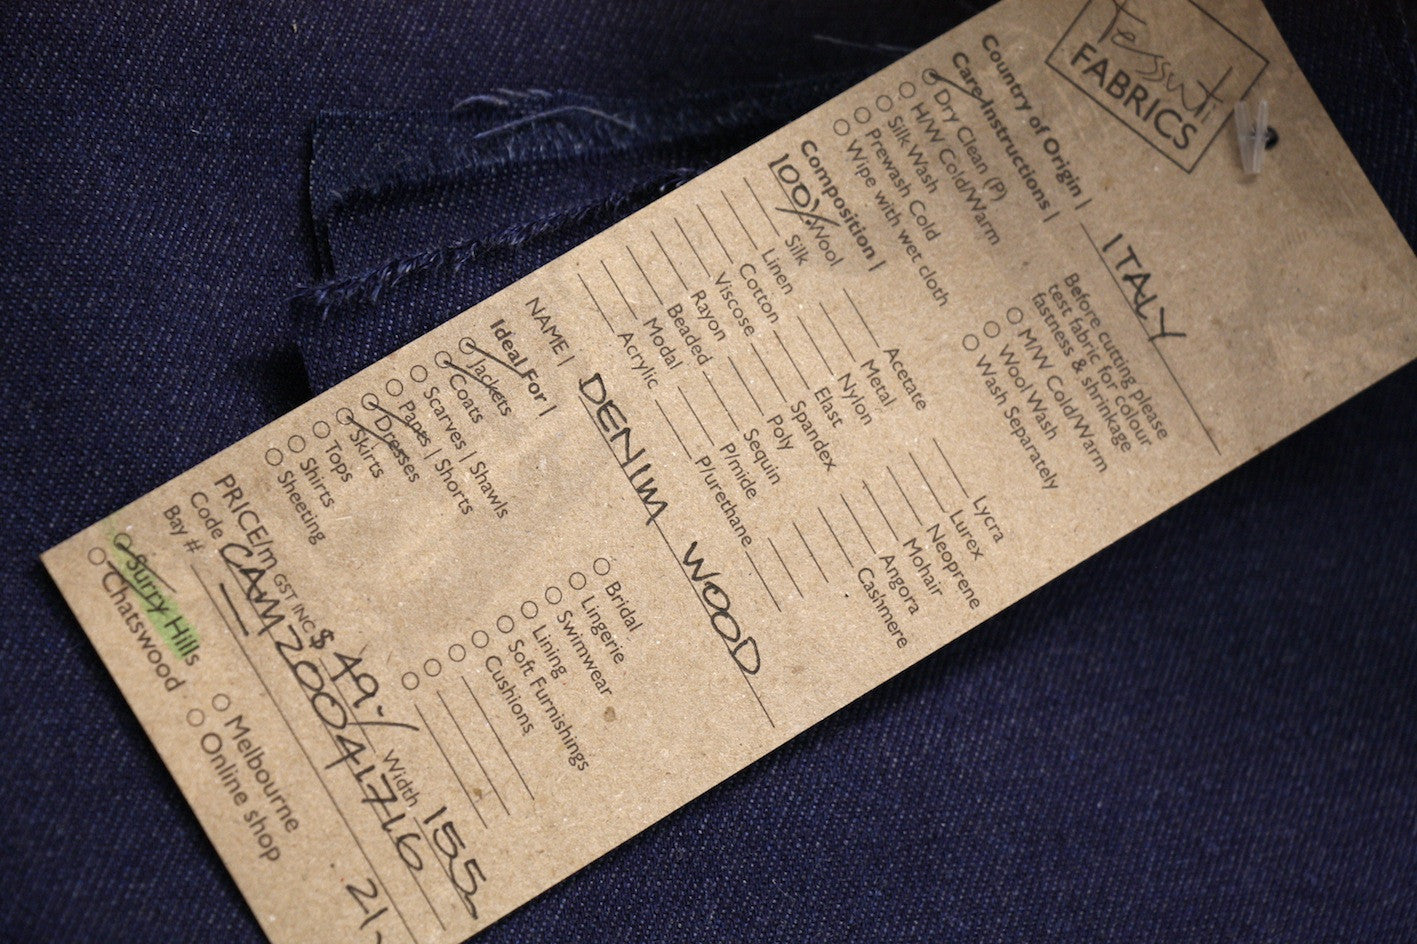 Tessuti
FABRICS
Country of Origin | ITALY
Care Instructions |
Before cutting please
test fabric for colour
fastness & shrinkage
Dry Clean (P)
H/W Cold/Warm
Silk Wash
Prewash Cold
Wipe with wet cloth
M/W Cold/Warm
Wool Wash
Wash Separately
Composition |
100% Wool
Silk
Linen
Cotton
Viscose
Rayon
Beaded
Modal
Acrylic
Acetate
Metal
Nylon
Elast
Spandex
Poly
Sequin
P/mide
P/urethane
Lycra
Lurex
Neoprene
Mohair
Angora
Cashmere
NAME | DENIM WOOD
Ideal For |
Jackets
Coats
Scarves | Shawls
Pants | Shorts
Dresses
Skirts
Tops
Shirts
Sheeting
Bridal
Lingerie
Swimwear
Lining
Soft Furnishings
Cushions
PRICE/m GST INC $ 49.- Width 155
Code CAM20041716
Bay # — 21
Surry Hills
Chatswood
Melbourne
Online shop